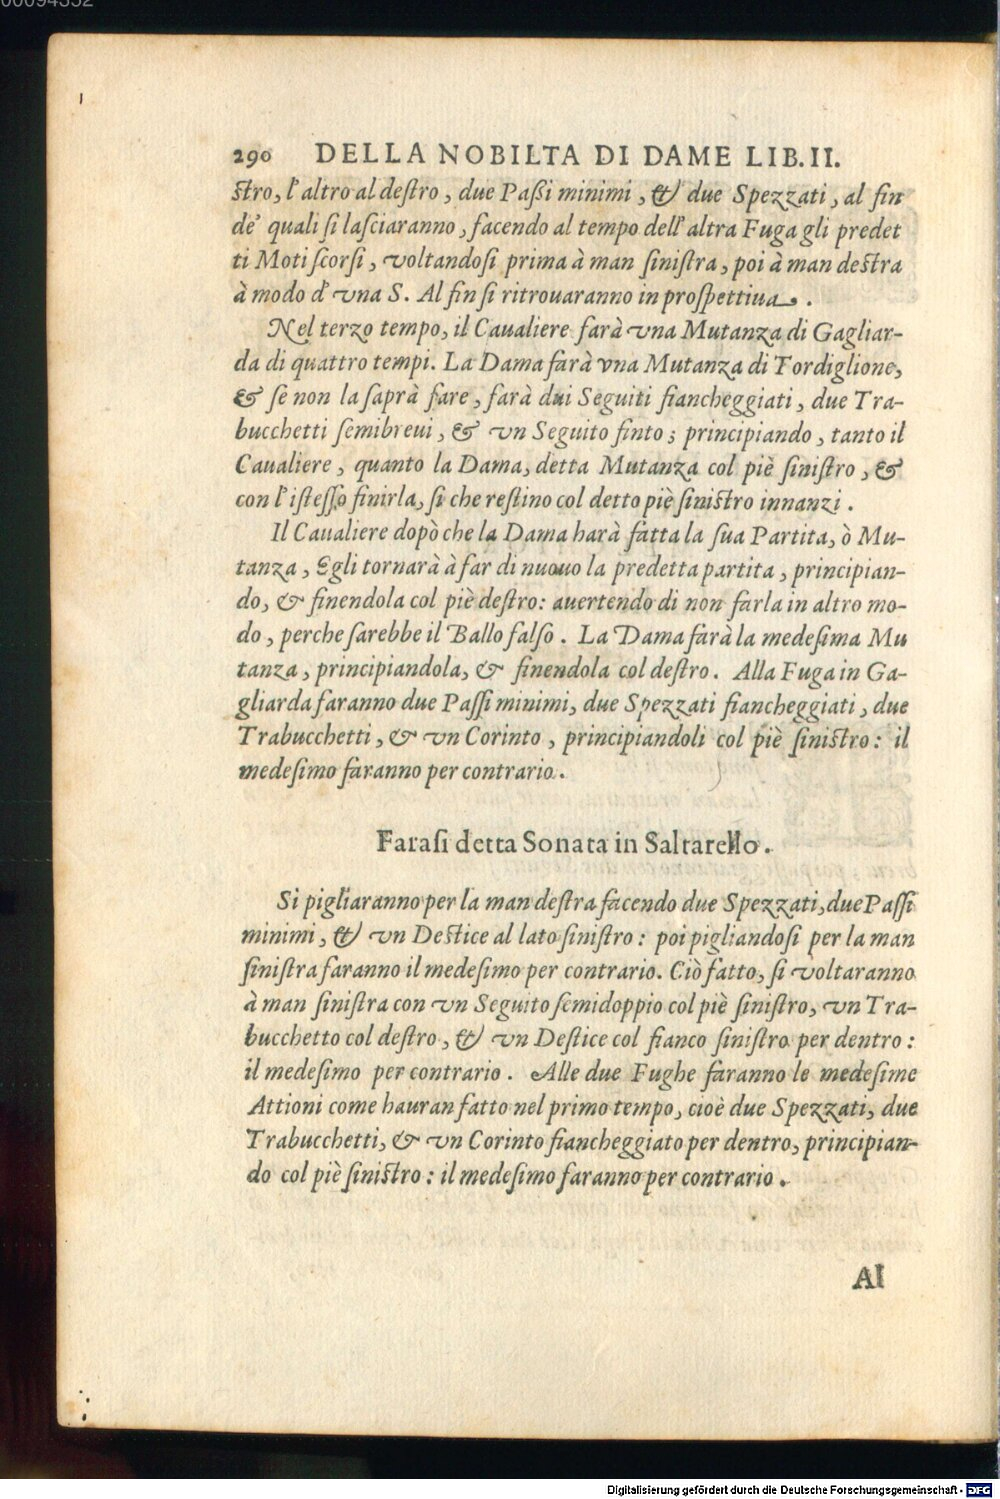 00094352
290 DELLA NOBILTA DI DAME LIB.II.
ſtro, l'altro al deſtro, due Paſſi minimi, & due Spezzati, al fin
de' quali ſi laſciaranno, facendo al tempo dell'altra Fuga gli predet
ti Moti ſcorſi, voltandoſi prima à man ſiniſtra, poi à man deſtra
à modo d'vna S. Al fin ſi ritrouaranno in proſpettiua.
Nel terzo tempo, il Caualiere farà vna Mutanza di Gagliar-
da di quattro tempi. La Dama farà vna Mutanza di Tordiglione,
& ſe non la ſaprà fare, farà dui Seguiti fiancheggiati, due Tra-
bucchetti ſemibreui, & vn Seguito finto; principiando, tanto il
Caualiere, quanto la Dama, detta Mutanza col piè ſiniſtro, &
con l'iſteſſo finirla, ſi che reſtino col detto piè ſiniſtro innanzi.
Il Caualiere dopò che la Dama harà fatta la ſua Partita, ò Mu-
tanza, Egli tornarà à far di nuouo la predetta partita, principian-
do, & finendola col piè deſtro: auertendo di non farla in altro mo-
do, perche ſarebbe il Ballo falſo. La Dama farà la medeſima Mu
tanza, principiandola, & finendola col deſtro. Alla Fuga in Ga-
gliarda faranno due Paſſi minimi, due Spezzati fiancheggiati, due
Trabucchetti, & vn Corinto, principiandoli col piè ſiniſtro: il
medeſimo faranno per contrario.
Faraſi detta Sonata in Saltarello.
Si pigliaranno per la man deſtra facendo due Spezzati, due Paſſi
minimi, & vn Deſtice al lato ſiniſtro: poi pigliandoſi per la man
ſiniſtra faranno il medeſimo per contrario. Ciò fatto, ſi voltaranno
à man ſiniſtra con vn Seguito ſemidoppio col piè ſiniſtro, vn Tra-
bucchetto col deſtro, & vn Deſtice col fianco ſiniſtro per dentro:
il medeſimo per contrario. Alle due Fughe faranno le medeſime
Attioni come hauran fatto nel primo tempo, cioè due Spezzati, due
Trabucchetti, & vn Corinto fiancheggiato per dentro, principian-
do col piè ſiniſtro: il medeſimo faranno per contrario.
Al
Digitalisierung gefördert durch die Deutsche Forschungsgemeinschaft - DFG